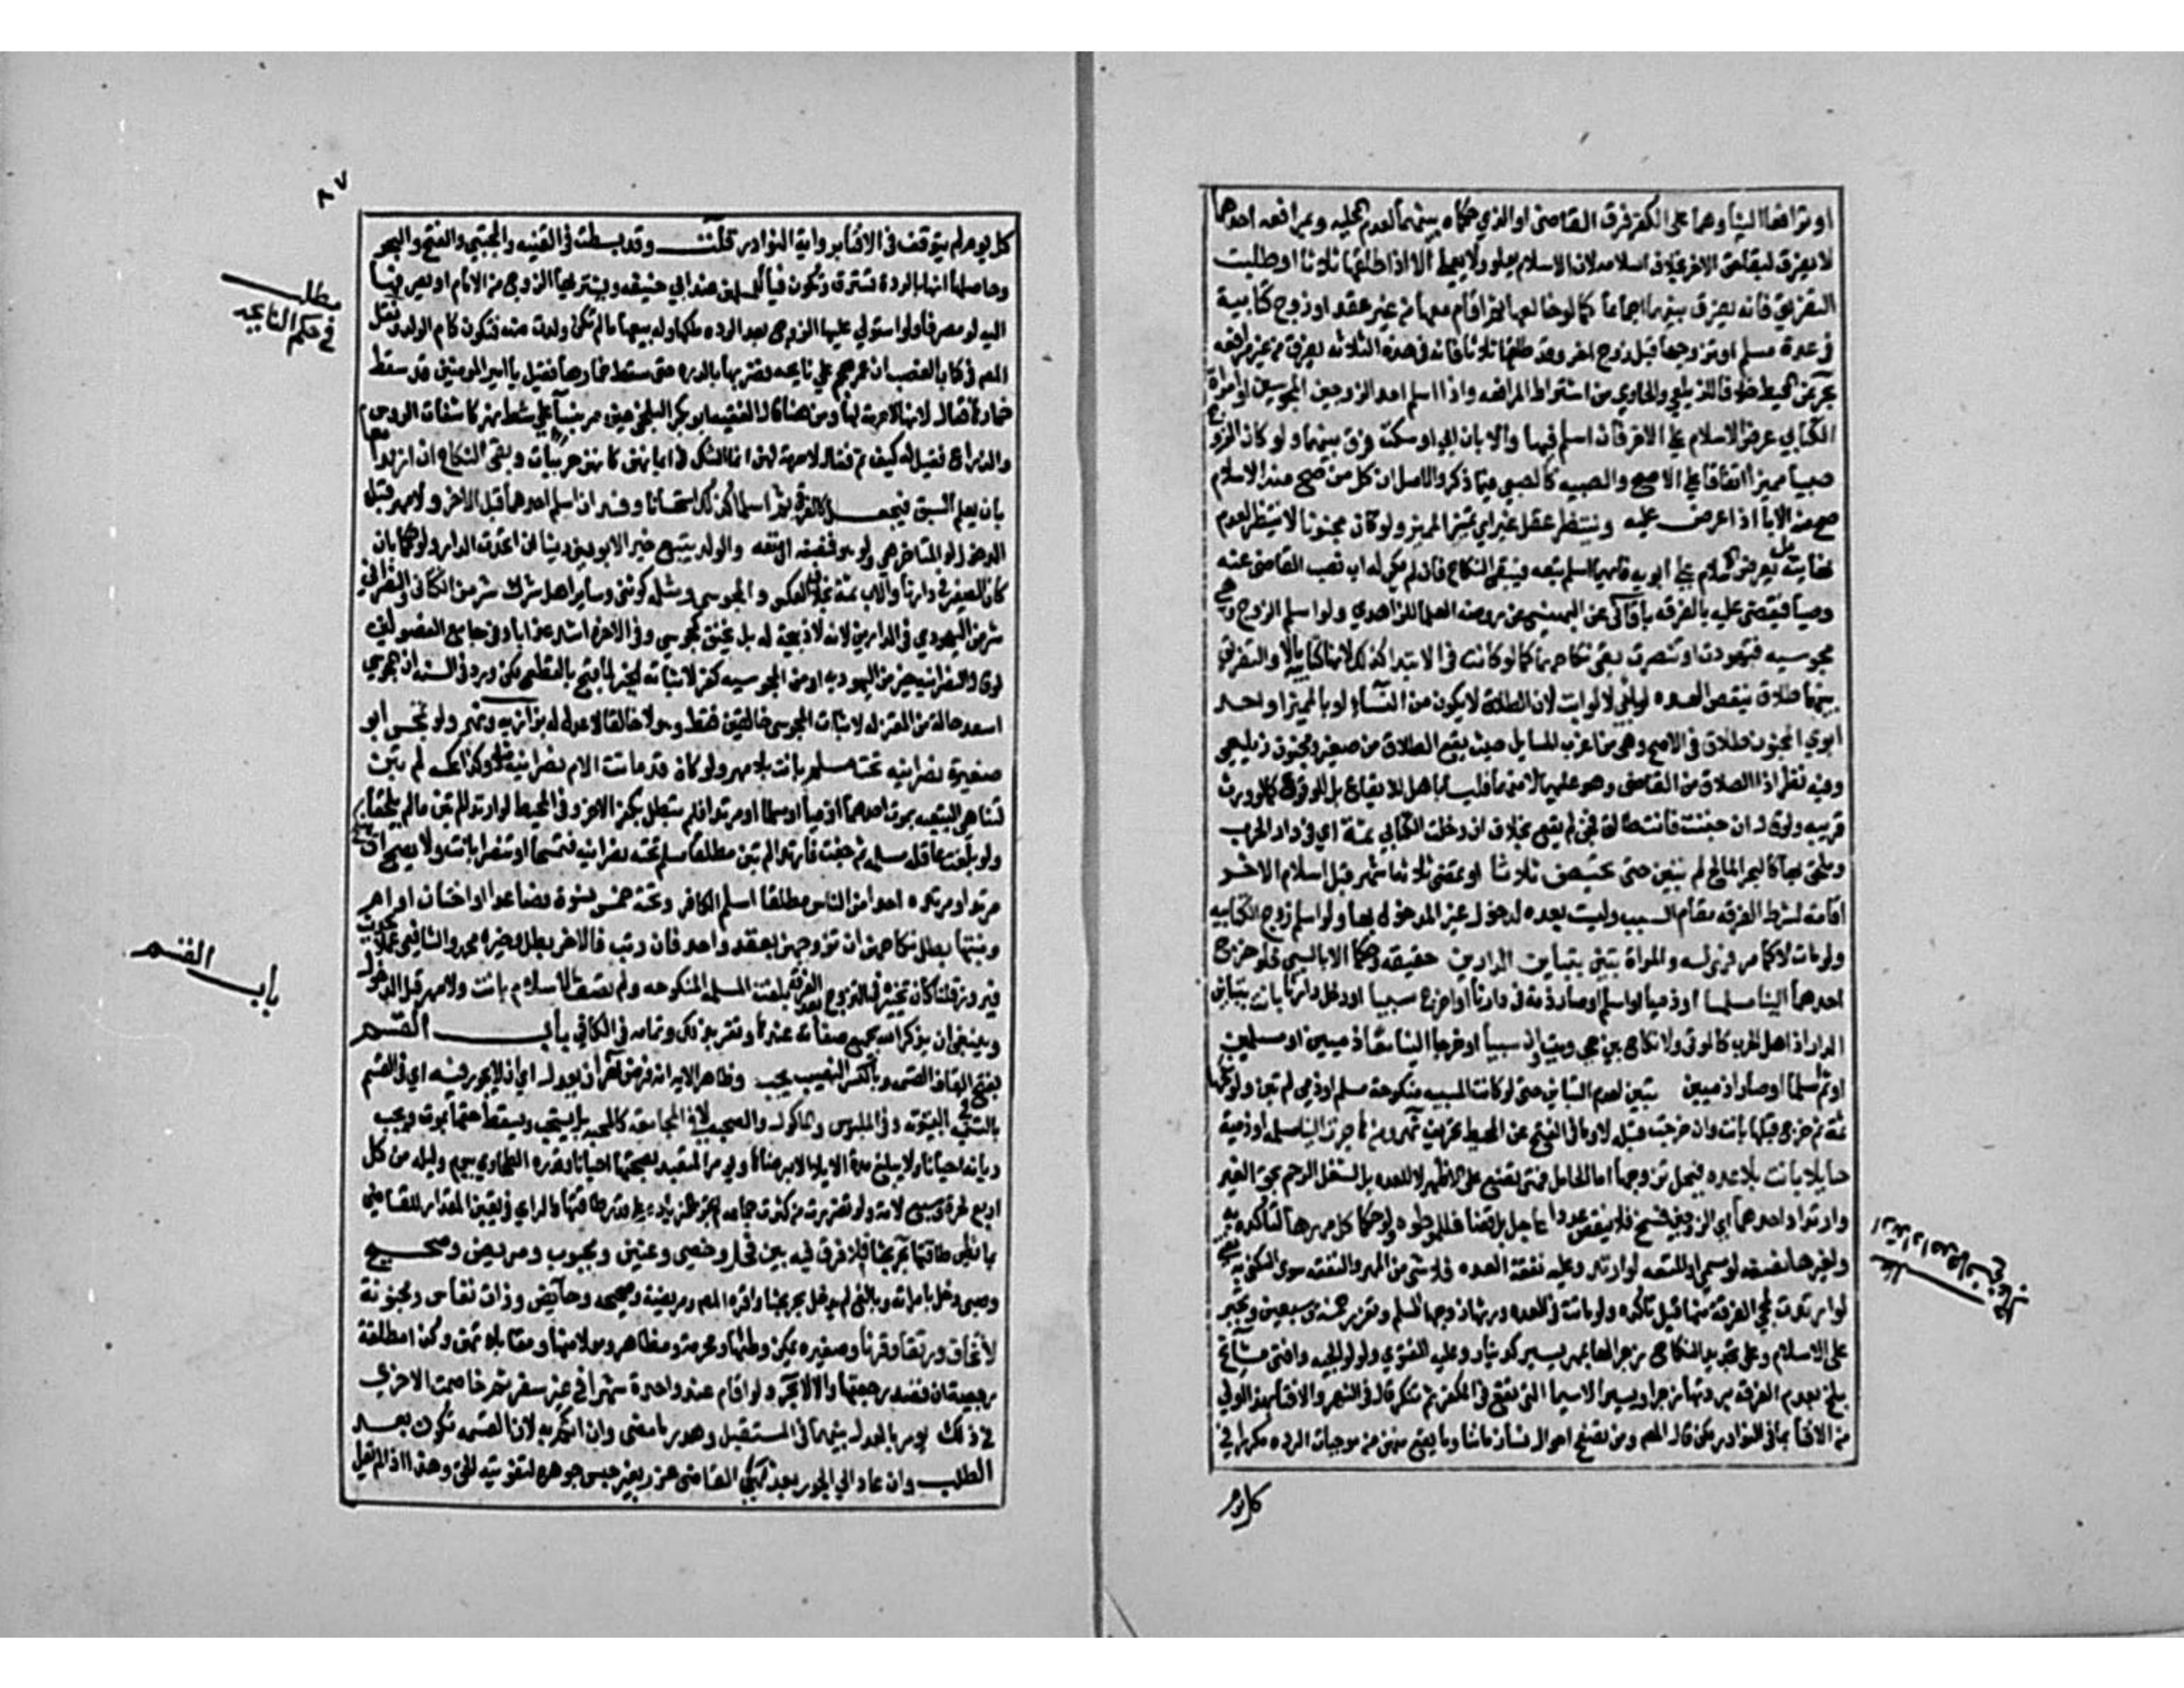 او ترافعا الينا وهما على الكفر فرق القاضي او الذي حكماه بينهما لعدم المحليه وبمرافعه احدهما
لا يفرق لبقاحق الاخر بخلاف اسلامه لان الاسلام يعلو ولا يعلى الا اذا طلقها ثلاثا او طلبت
التفريق فانه يفرق بينهما اجماعا كما لو خالعها ثم اقام معها من غير عقد او تزوج كتابية
في عدة مسلم او تزوجها قبل زوج اخر وقد طلقها ثلاثا فانه في هذه الثلاثه يفرق من غير مرافعه
بحر عن المحيط خلافا للزيلعي والحاوي من اشتراط المرافعه واذا اسلم احد الزوجين المجوسين او امراة
الكتابي عرض الاسلام على الاخر فان اسلم فبها والا بان ابى او سكت فرق بينهما ولو كان الزوج
صبيا مميزا اتفاقا على الاصح والصبيه كالصبي فيما ذكر والاصل ان كل من صح منه الاسلام
صح منه الابا اذا عرض عليه وينتظر عقل غير اي تميز المميز ولو كان مجنونا لا ينتظر لعدم
نهايته بل يعرض الاسلام على ابويه فايهما اسلم تبعه فيبقى النكاح فان لم يكن له اب نصب القاضي عنه
وصيا فيقضى عليه بالفرقه باقاني عن البهنسي عن روضه العلما للزاهدي ولو اسلم الزوج وهي
مجوسيه فتهودت او تنصرت بقي نكاحها كما لو كانت في الابتدا كذلك لانها كتابيه مالا والتفريق
بينهما طلاق ينقص العدد لو ابى لا لو ابت لان الطلاق لا يكون من النساء لو ابا المميز او احد
ابوي المجنون طلاق في الاصح وهي من اغرب المسايل حيث يقع الطلاق من صغير ومجنون زيلعي
وفيه نظر اذا الطلاق من القاضي وهو عليهما لا منهما فليسا باهل للايقاع بل للوقوع كما لو ورث
قريبه ولو قال ان جننت فانت طالق فجن لم يقع بخلاف ان دخلت الكتابي ثمة اي في دار الحرب
وملحق بها كالبحر المالح لم تبن حتى تحيض ثلاثا او تمضي ثلاثة اشهر قبل اسلام الاخر
اقامة لشرط الفرقه مقام السبب وليست بعده لدخول غير المدخول بها ولو اسلم زوج الكتابيه
ولو مالا كما مر فهي له والمراة تبين بتباين الدارين حقيقه وحكما لا بالسبي فلو خرج
احدهما الينا مسلما او ذميا او اسلم او صار ذمة في دارنا او اخرج سبيا او دخل دارنا بانت بتباين
الدار اذ اهل الحرب كالموتى ولا نكاح بين حي وميت وان سبيا او خرجا الينا معا ذميين او مسلمين
او ثم اسلما او صارا ذميين لم تبن لعدم التباين حتى لو كانت المسبيه منكوحة مسلم او ذمي لم تبن ولو نكحها
ثمة ثم خرج قبلها بانت وان خرجت قبله لا وما في الفتح عن المحيط تحريف نهر ومن هاجرت الينا مسلمه او ذمية
حايلا بانت بلا عده فيحل تزوجها اما الحامل فحتى تضع على الاظهر لا للعده بل لشغل الرحم بحق الغير
وارتداد احدهما اي الزوجين فسخ فلا ينقص عددا عاجل بلا قضا فللموطوه ولو حكما كل مهرها لتاكده به
ولغيرها نصفه لو سمي او المتعه لو ارتد وعليه نفقة العده ولا شي من المهر والنفقه سوى السكنى به
لو ارتدت لمجي الفرقة منها قبل تاكده ولو ماتت في العده ورثها زوجها المسلم وتعزر خمسة وسبعين وتجبر
على الاسلام وعلى تجديد النكاح زجرا لها بمهر يسير كدينار وعليه الفتوى ولوالجيه وافتى مشايخ
بلخ بعدم الفرقه بردتها زجرا وتيسيرا لا سيما التي تقع في المكفر ثم تنكر قال في النهر والافتا بهذا اولى
من الافتا بما في النوادر لكن قال المص ومن تصفح احوال نسا زماننا وما يقع منهن من موجبات الرده مكررا في
كل يوم
مطلب
٨٧
كل يوم لم يتوقف في الافتا برواية النوادر قلت وقد بسطت في القنيه والمجتبى والفتح والبحر
وحاصلها انها بالردة تسترق وتكون فيا للمسلمين عند ابي حنيفه ويشتريها الزوج من الامام او يصرفها
اليه لو مصرفا ولو استولى عليها الزوج بعد الرده ملكها وله بيعها ما لم تكن ولدت منه فتكون كام الولد ونقل
المص في كتاب الغصب ان عمر هجم على نايحه فضربها بالدره حتى سقط خمارها فقيل يا امير المومنين قد سقط
خمارها فقال لانها لا حرمة لها ومن هنا قال الفقيه ابو بكر البلخي حين مر بنسا على شط نهر كاشفات الروس
والذراع فقيل له كيف تمر فقال لا حرمة لهن انما الشك في ايمانهن كانهن حربيات وبقي النكاح ان ارتدا معا
بان لم يعلم السبق فيجعل كالغرقى ثم اسلما كذلك استحسانا وفسد ان اسلم احدهما قبل الاخر ولا مهر قبل
الدخول لو المتاخر هي ولو هو فنصفه او متعه والولد يتبع خير الابوين دينا ان اتحدت الدار ولو حكما بان
كان الصغير في دارنا والاب ثمة بخلاف العكس والمجوسي ومثله كوثني وساير اهل شرك شر من الكتابي والنصراني
شر من اليهودي في الدارين لانه لا ذبيحة له بل يخنق كمجوسي وفي الاخرة اشد عذابا وفي جامع الفصولين
لو قال النصرانيه خير من اليهوديه او من المجوسيه كفر لاثباته الخير لما قبح بالقطعي لكن ورد في السنه ان المجوسي
اسعد حالة من المعتزله لاثبات المجوسي خالقين فقط وهولا خالقا لا عدد له بزازيه ونهر ولو تمجس ابو
صغيرة نصرانيه تحت مسلم بانت بلا مهر ولو كان قد ماتت الام نصرانية مثلا وكذا عكسه لم تبن
لتناهي التبعيه بموت احدهما ذميا او مسلما او مرتدا فلم تبطل بكفر الاخر وفي المحيط لو ارتدا لم تبن ما لم يلحقا
ولو بلغت عاقله مسلمه ثم جنت فارتدا لم تبن مطلقا مسلم تحته نصرانيه فتمجسا او تنصرا بانت ولا يصح ان ينكح
مرتد او مرتدة احدا من الناس مطلقا اسلم الكافر وتحته خمس نسوة فصاعدا او اختان او ام
وبنتها بطل نكاحهن ان تزوجهن بعقد واحد فان رتب فالاخر باطل وخيره محمد والشافعي عملا بحديث
فيروز قلنا كان تخييره في التزوج بعد الفرقه بلغت المسلمه المنكوحه ولم تصف الاسلام بانت ولا مهر قبل الدخول
وينبغي ان يذكر الله بجميع صفاته عندها وتقر بذلك وتمامه في الكافي باب القسم
بفتح القاف القسمه وبالكسر النصيب يجب وظاهر الايه انه فرض نهر ان يعدل اي ان لا يجور فيه اي في القسم
بالتسويه في البيتوته وفي الملبوس والماكول والصحبه لا في المجامعه كالمحبه بل يستحب ويسقط حقها بمرة ويجب
ديانه احيانا ولا يبلغ مدة الايلا الا برضاها ويومر المتعبد بصحبتها احيانا وقدره الطحاوي بيوم وليله من كل
اربع لحرة وسبع لامة ولو تضررت من كثرة جماعه لم تجز الزيادة على قدر طاقتها والراي في تعيين المقدار للقاضي
بما يظن طاقتها نهر بحثا بلا فرق فيه بين فحل وخصي وعنين ومجبوب ومريض وصحيح
وصبي دخل بامراته وبالغ لم يدخل بحر بحثا واقره المص ومريضة وصحيحه وحايض وذات نفاس ومجنونة
لا تخاف ورتقا وقرنا وصغيره يمكن وطئها ومحرمة ومظاهر ومولا منها ومقابلاتهن وكذا مطلقة
رجعية ان قصد رجعتها والا لا بحر ولو اقام عند واحدة شهرا في غير سفر ثم خاصمت الاخرى
في ذلك يومر بالعدل بينهما في المستقبل وهدر ما مضى وان اثم به لان القسمه تكون بعد
الطلب وان عاد الى الجور بعد نهي القاضي عزر بغير حبس جوهره لتفويته الحق وهذا اذا لم يقل
مطلب
في حكم النايحه
باب القسم